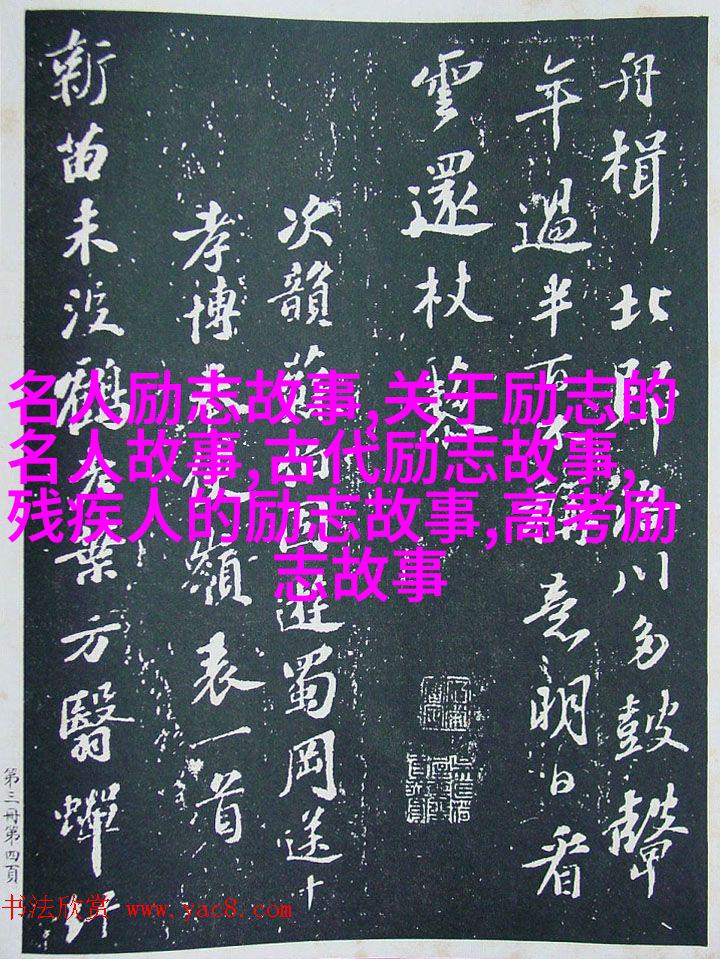 舟楫北川多鼓聲
年過半百不稱意明日看
雲還杖藜
次韻蘇伯固遊蜀岡送
孝博奉使嶺表一首
新苗未沒鶴老葉方翳蟬
名人励志故事,关于励志的
名人故事,古代励志故事,
残疾人的励志故事,高考励
志故事
第三冊第四頁
书法欣赏 www.yac8.com